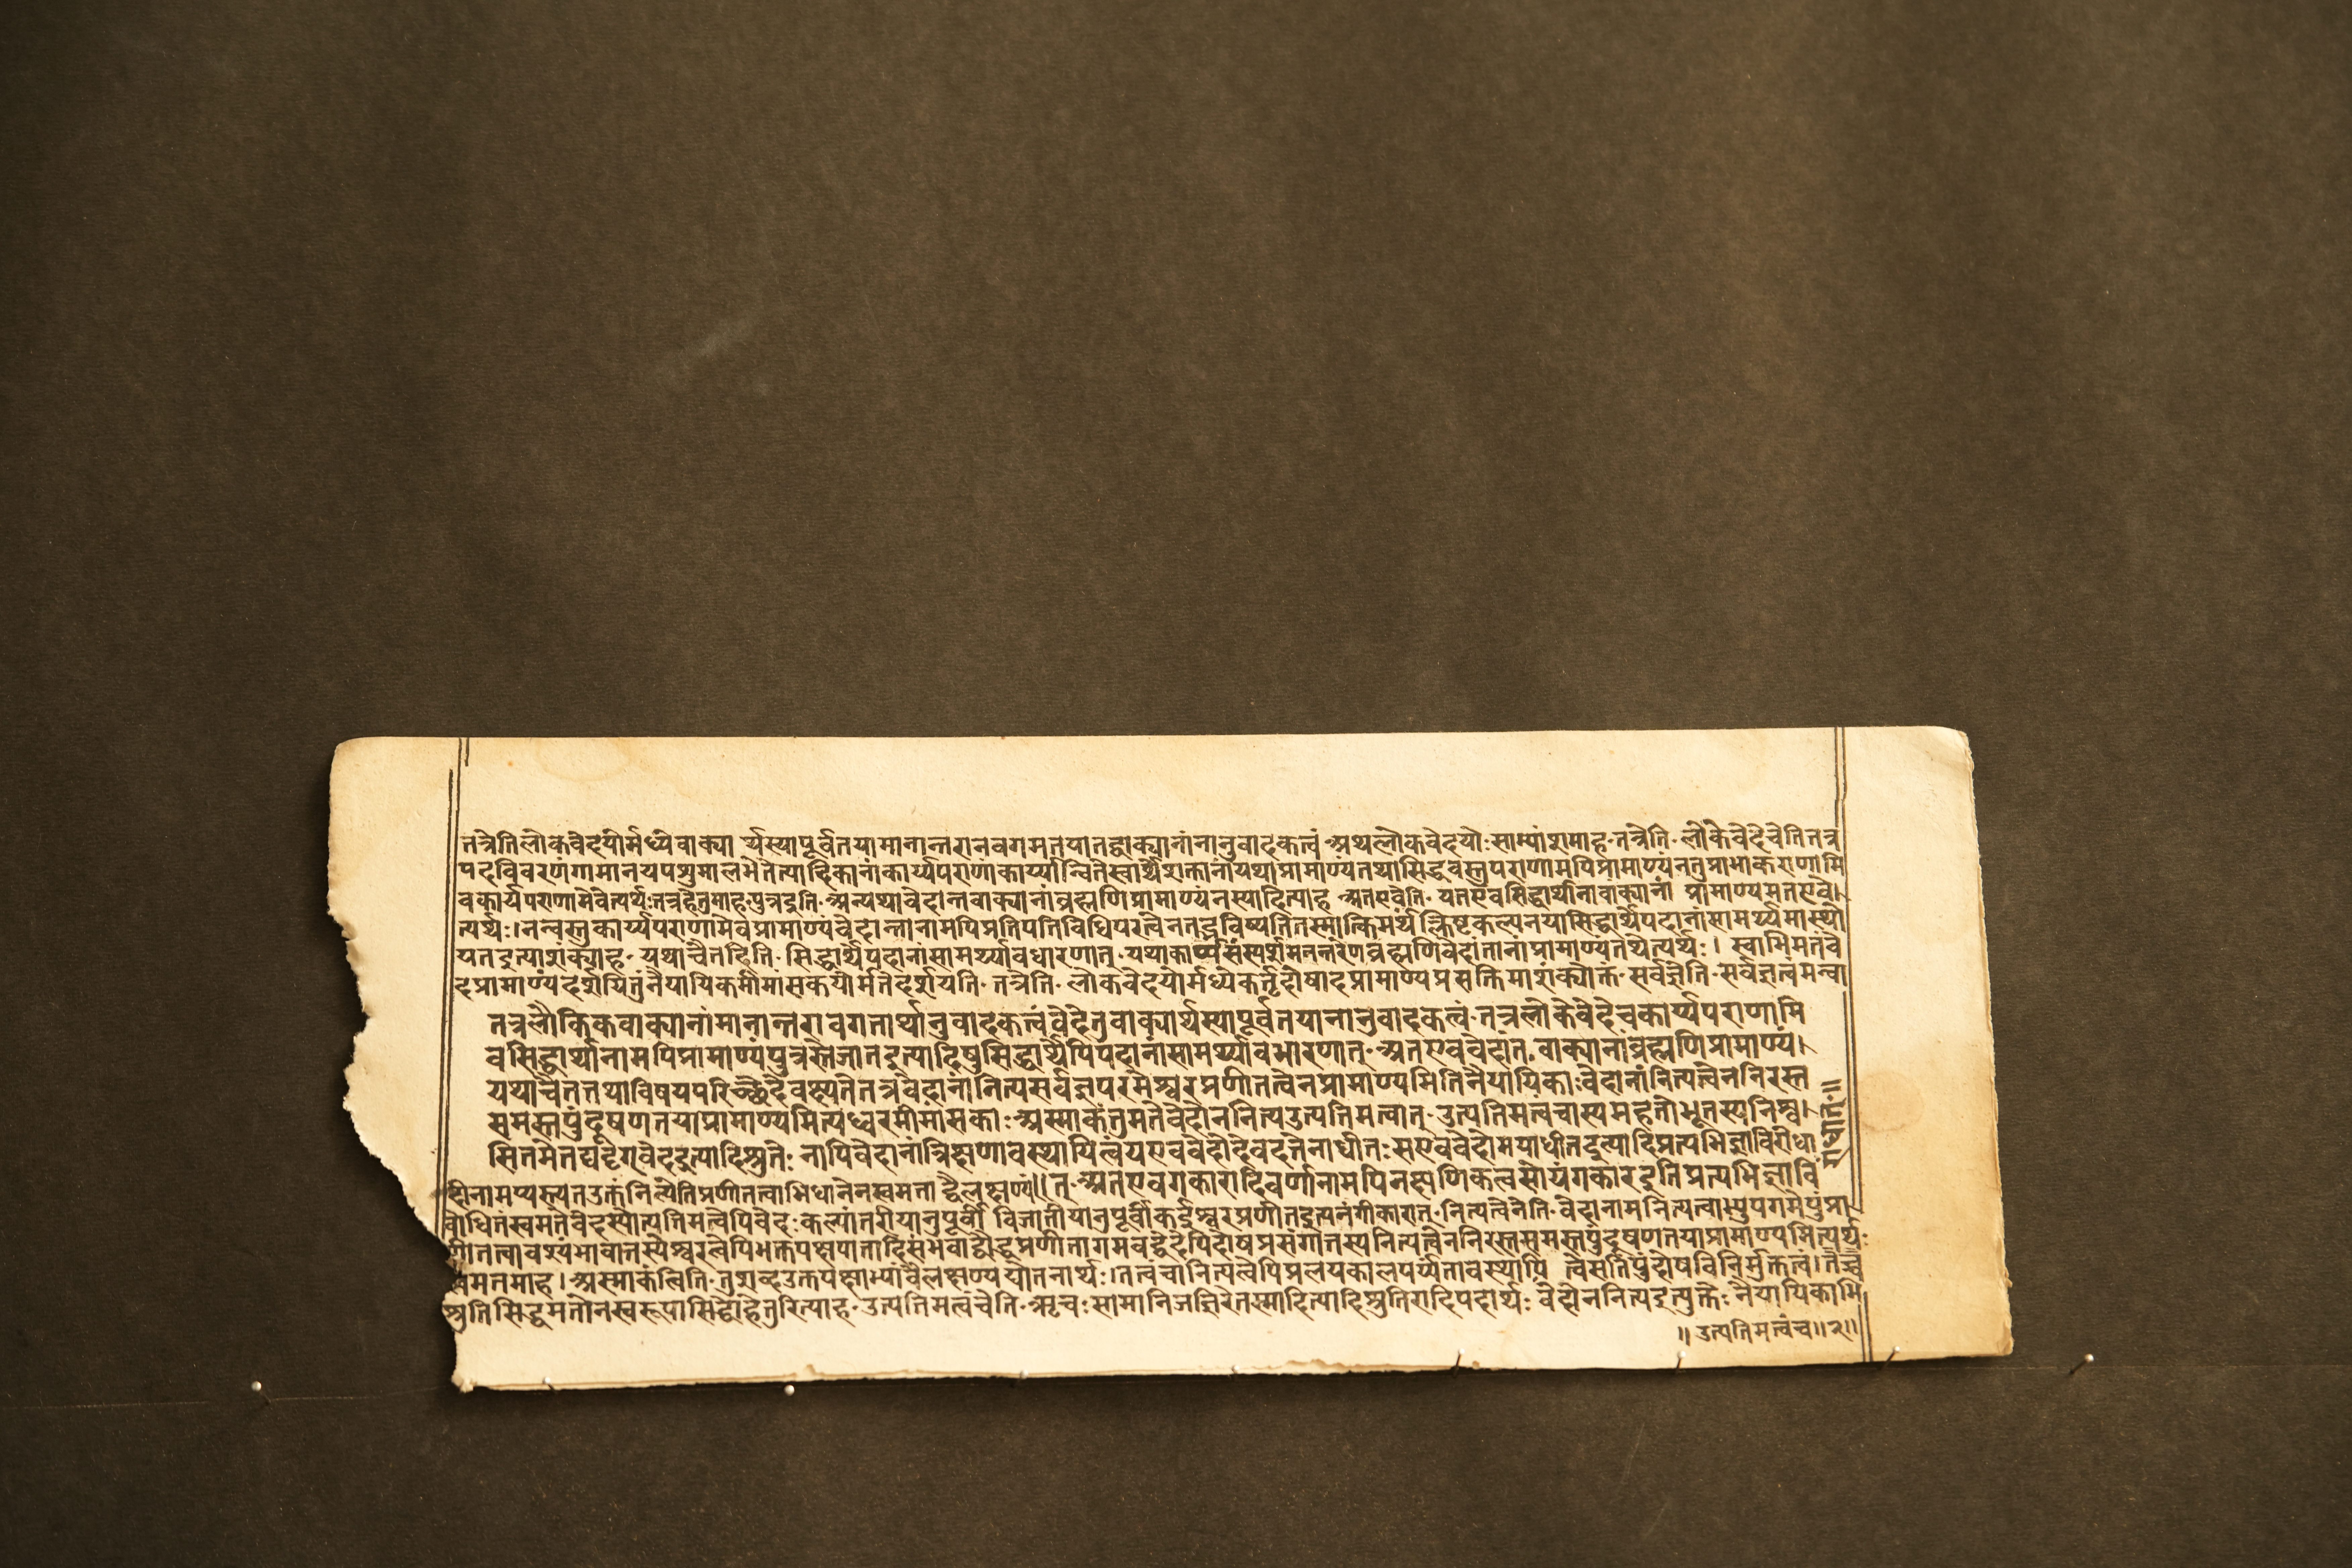 तत्रेतिलोकवेदयोर्मध्येवाक्यार्थस्यापूर्वतयामानान्तरानवगमतयातद्वाक्यानांनानुवादकत्वं अथलोकवेदयोःसाम्यांशमाह तत्रेति लोकेवेदेचेतितत्र
पदविवरणंगामानयपशुमालभेतेत्यादिकानांकार्य्यपराणांकार्य्यान्वितेस्वार्थेशक्तानांयथाप्रामाण्यंतथासिद्धवस्तुपराणामपिप्रामाण्यंनतुप्राभाकराणामि
वकार्यपराणामेवेत्यर्थःतत्रहेतुमाह पुत्रइति अन्यथावेदान्तवाक्यानांब्रह्मणिप्रामाण्यंनस्यादित्याह अतएवेति यतएवसिद्धार्थानांवाक्यानां प्रामाण्यमतएवे
त्यर्थः।नन्वस्तुकार्य्यपराणामेवप्रामाण्यंवेदान्तानामपिप्रतिपत्तिविधिपरत्वेनतद्भविष्यतितस्मात्किमर्थंक्लिष्टकल्पनयासिद्धार्थेपदानांसामर्थ्यमास्थी
यतइत्याशंक्याह यथाचैतदिति सिद्धार्थेपदानांसामर्थ्यावधारणात् यथाकार्य्यसंस्पर्शमनन्तरेणब्रह्मणिवेदांतानांप्रामाण्यंतथेत्यर्थः। स्वाभिमतंवे
दप्रामाण्यंदर्शयितुंनैयायिकमीमांसकयोर्मतेदर्शयति तत्रेति लोकवेदयोर्मध्येकर्तृदोषादप्रामाण्यप्रसक्तिमाशंक्योक्तं सर्वज्ञेति सर्वज्ञत्वमन्वा
तत्रलौकिकवाक्यानांमानान्तरावगतार्थानुवादकत्वंवेदेतुवाक्यार्थस्यापूर्वतयानानुवादकत्वं तत्रलोकेवेदेचकार्य्यपराणामि
वसिद्धार्थानामपिप्रामाण्यंपुत्रस्तेजातइत्यादिषुसिद्धार्थेपिपदानांसामर्थ्यावधारणात् अतएववेदांतवाक्यानांब्रह्मणिप्रामाण्यं।
यथाचैतत्तथाविषयपरिच्छेदेवक्ष्यतेतत्रवेदानांनित्यसर्वज्ञपरमेश्वरप्रणीतत्वेनप्रामाण्यमितिनैयायिकाःवेदानांनित्यत्वेननिरस्त
समस्तपुंदूषणतयाप्रामाण्यमित्यध्वरमीमांसकाःअस्माकंतुमतेवेदोननित्यउत्पत्तिमत्वात् उत्पत्तिमत्वंचास्यमहतोभूतस्यनिश्व
सितमेतद्यदृग्वेदइत्यादिश्रुतेः नापिवेदानांत्रिक्षणावस्थायित्वंयएववेदोदेवदत्तेनाधीतःसएववेदोमयाधीतइत्यादिप्रत्यभिज्ञाविरोधा
त् अतएवगकारादिवर्णानामपिनक्षणिकत्वंसोयंगकारइतिप्रत्यभिज्ञावि
दीनामप्यस्त्यतउक्तंनित्येतिप्रणीतत्वाभिधानेनस्वमताद्वैलक्षण्यं॥
बोधितंस्वमतेवेदस्योत्पत्तिमत्वेपिवेदःकल्पांतरीयानुपूर्वीविजातीयानुपूर्वीकईश्वरप्रणीतइत्यनंगीकारात् नित्यत्वेनेति वेदानामनित्यत्वाभ्युपगमेपुंप्र
णीतत्वावश्यंभावात्तस्येश्वरत्वेपिभक्तपक्षपातादिसंभवाद्बौद्धप्रणीतागमवद्वेदेपिदोषप्रसंगात्तस्यनित्यत्वेननिरस्तसमस्तपुंदूषणतयाप्रामाण्यमित्यर्थः
मतमाह।अस्माकंत्विति तुशब्दउक्तपक्षाभ्यांवैलक्षण्यद्योतनार्थः।तत्वंचानित्यत्वेपिप्रलयकालपर्य्यंतावस्थायित्वेसतिपुंदोषविनिर्मुक्तत्वं।
श्रुतिसिद्धमतोनस्वरूपासिद्धोहेतुरित्याह उत्पत्तिमत्वंचेति ऋचःसामानिजज्ञिरेतस्मादित्यादिश्रुतिरादिपदार्थः वेदोननित्यइत्युक्तेःनैयायिकाभि
॥उत्पत्तिमत्वंच॥२॥